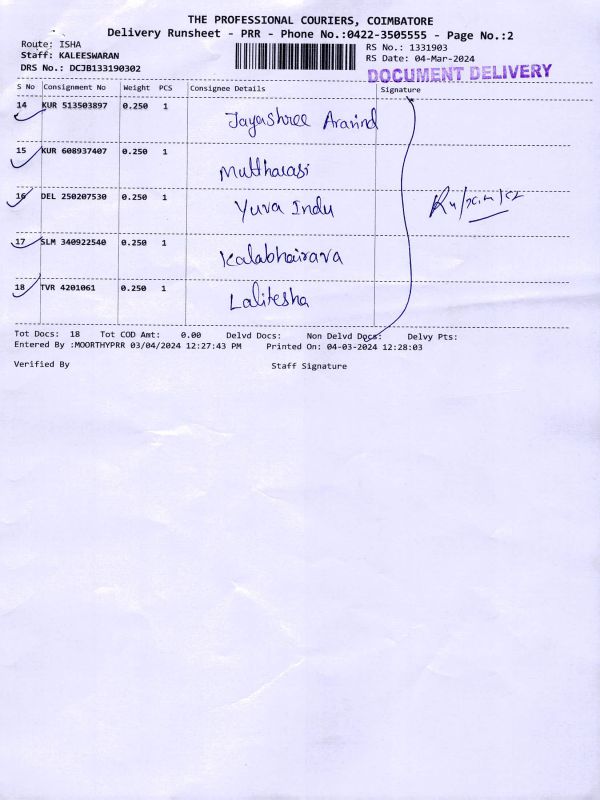 THE PROFESSIONAL COURIERS, COIMBATORE
Delivery Runsheet - PRR - Phone No.:0422-3505555 - Page No.:2
Route: ISHA
RS No.: 1331903
Staff: KALEESWARAN
RS Date: 04-Mar-2024
DRS No.: DCJB133190302
DOCUMENT DELIVERY
S No Consignment No Weight PCS Consignee Details Signature
14 KUR 513503897 0.250 1 Jayashree Aravind
15 KUR 608937407 0.250 1 Mutharasi
16 DEL 250207530 0.250 1 Yuva Indu
17 SLM 340922540 0.250 1 Kalabhairava
18 TVR 4201061 0.250 1 Lalitesha
Tot Docs: 18 Tot COD Amt: 0.00 Delvd Docs: Non Delvd Docs: Delvy Pts:
Entered By :MOORTHYPRR 03/04/2024 12:27:43 PM Printed On: 04-03-2024 12:28:03
Verified By Staff Signature